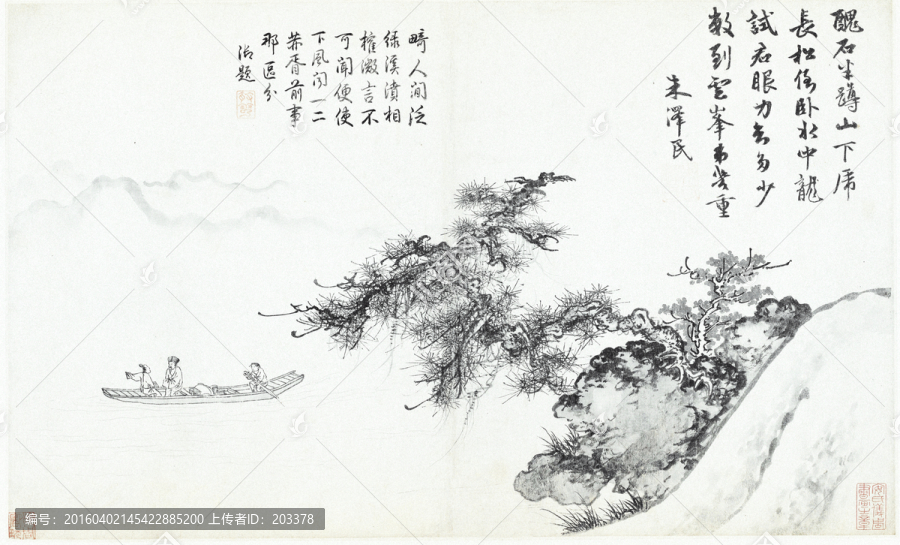 醜石半蹲山下虎
長松倒卧水中龍
試君眼力知多少
數到雲峯第幾重
朱澤民
畸人閒泛
綠溪濆相
榷微言不
可聞便使
下風聞一二
華胥前事
那區分
題
编号：20160402145422885200 上传者ID：203378